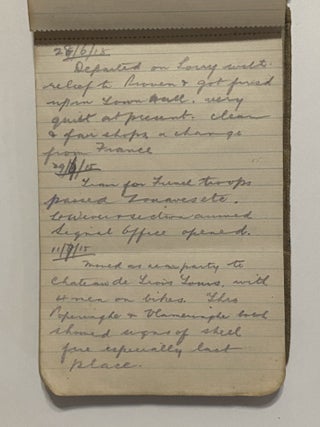 28/6/15
Departed on Lorry with
relief to Proven & got fixed
up in Town Hall. very
quiet at present. clean
& fair shops a change
from France
29/6/15
Train for French troops
passed Zouaves etc.
section arrived
Signal Office opened.
11/7/15
Moved as rear party to
Chateau de Trois Tours, with
4 men on bikes. Thro
Poperinghe & Vlamertinghe both
showed signs of shell
fire especially last
place.